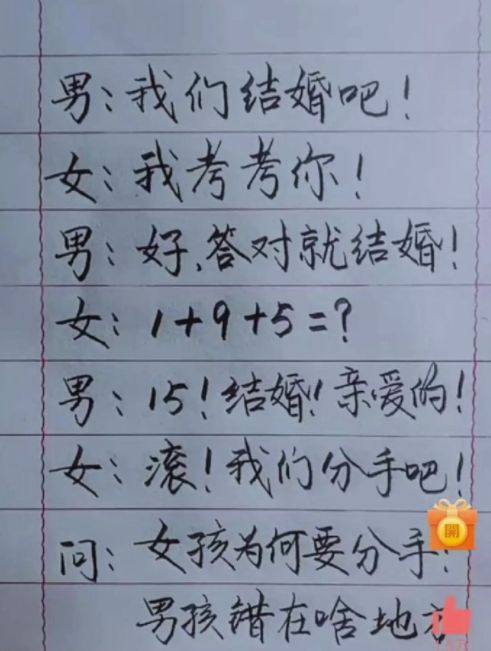 男：我们结婚吧！
女：我考考你！
男：好、答对就结婚！
女：1+9+5=？
男：15！结婚！亲爱的！
女：滚！我们分手吧！
開
问：女孩为何要分手？
男孩错在啥地方